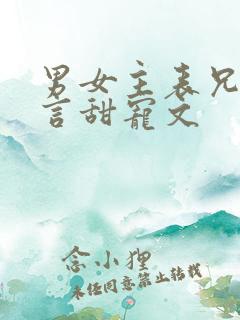 男女主表兄
言甜寵文
念小狸
未经同意禁止转载